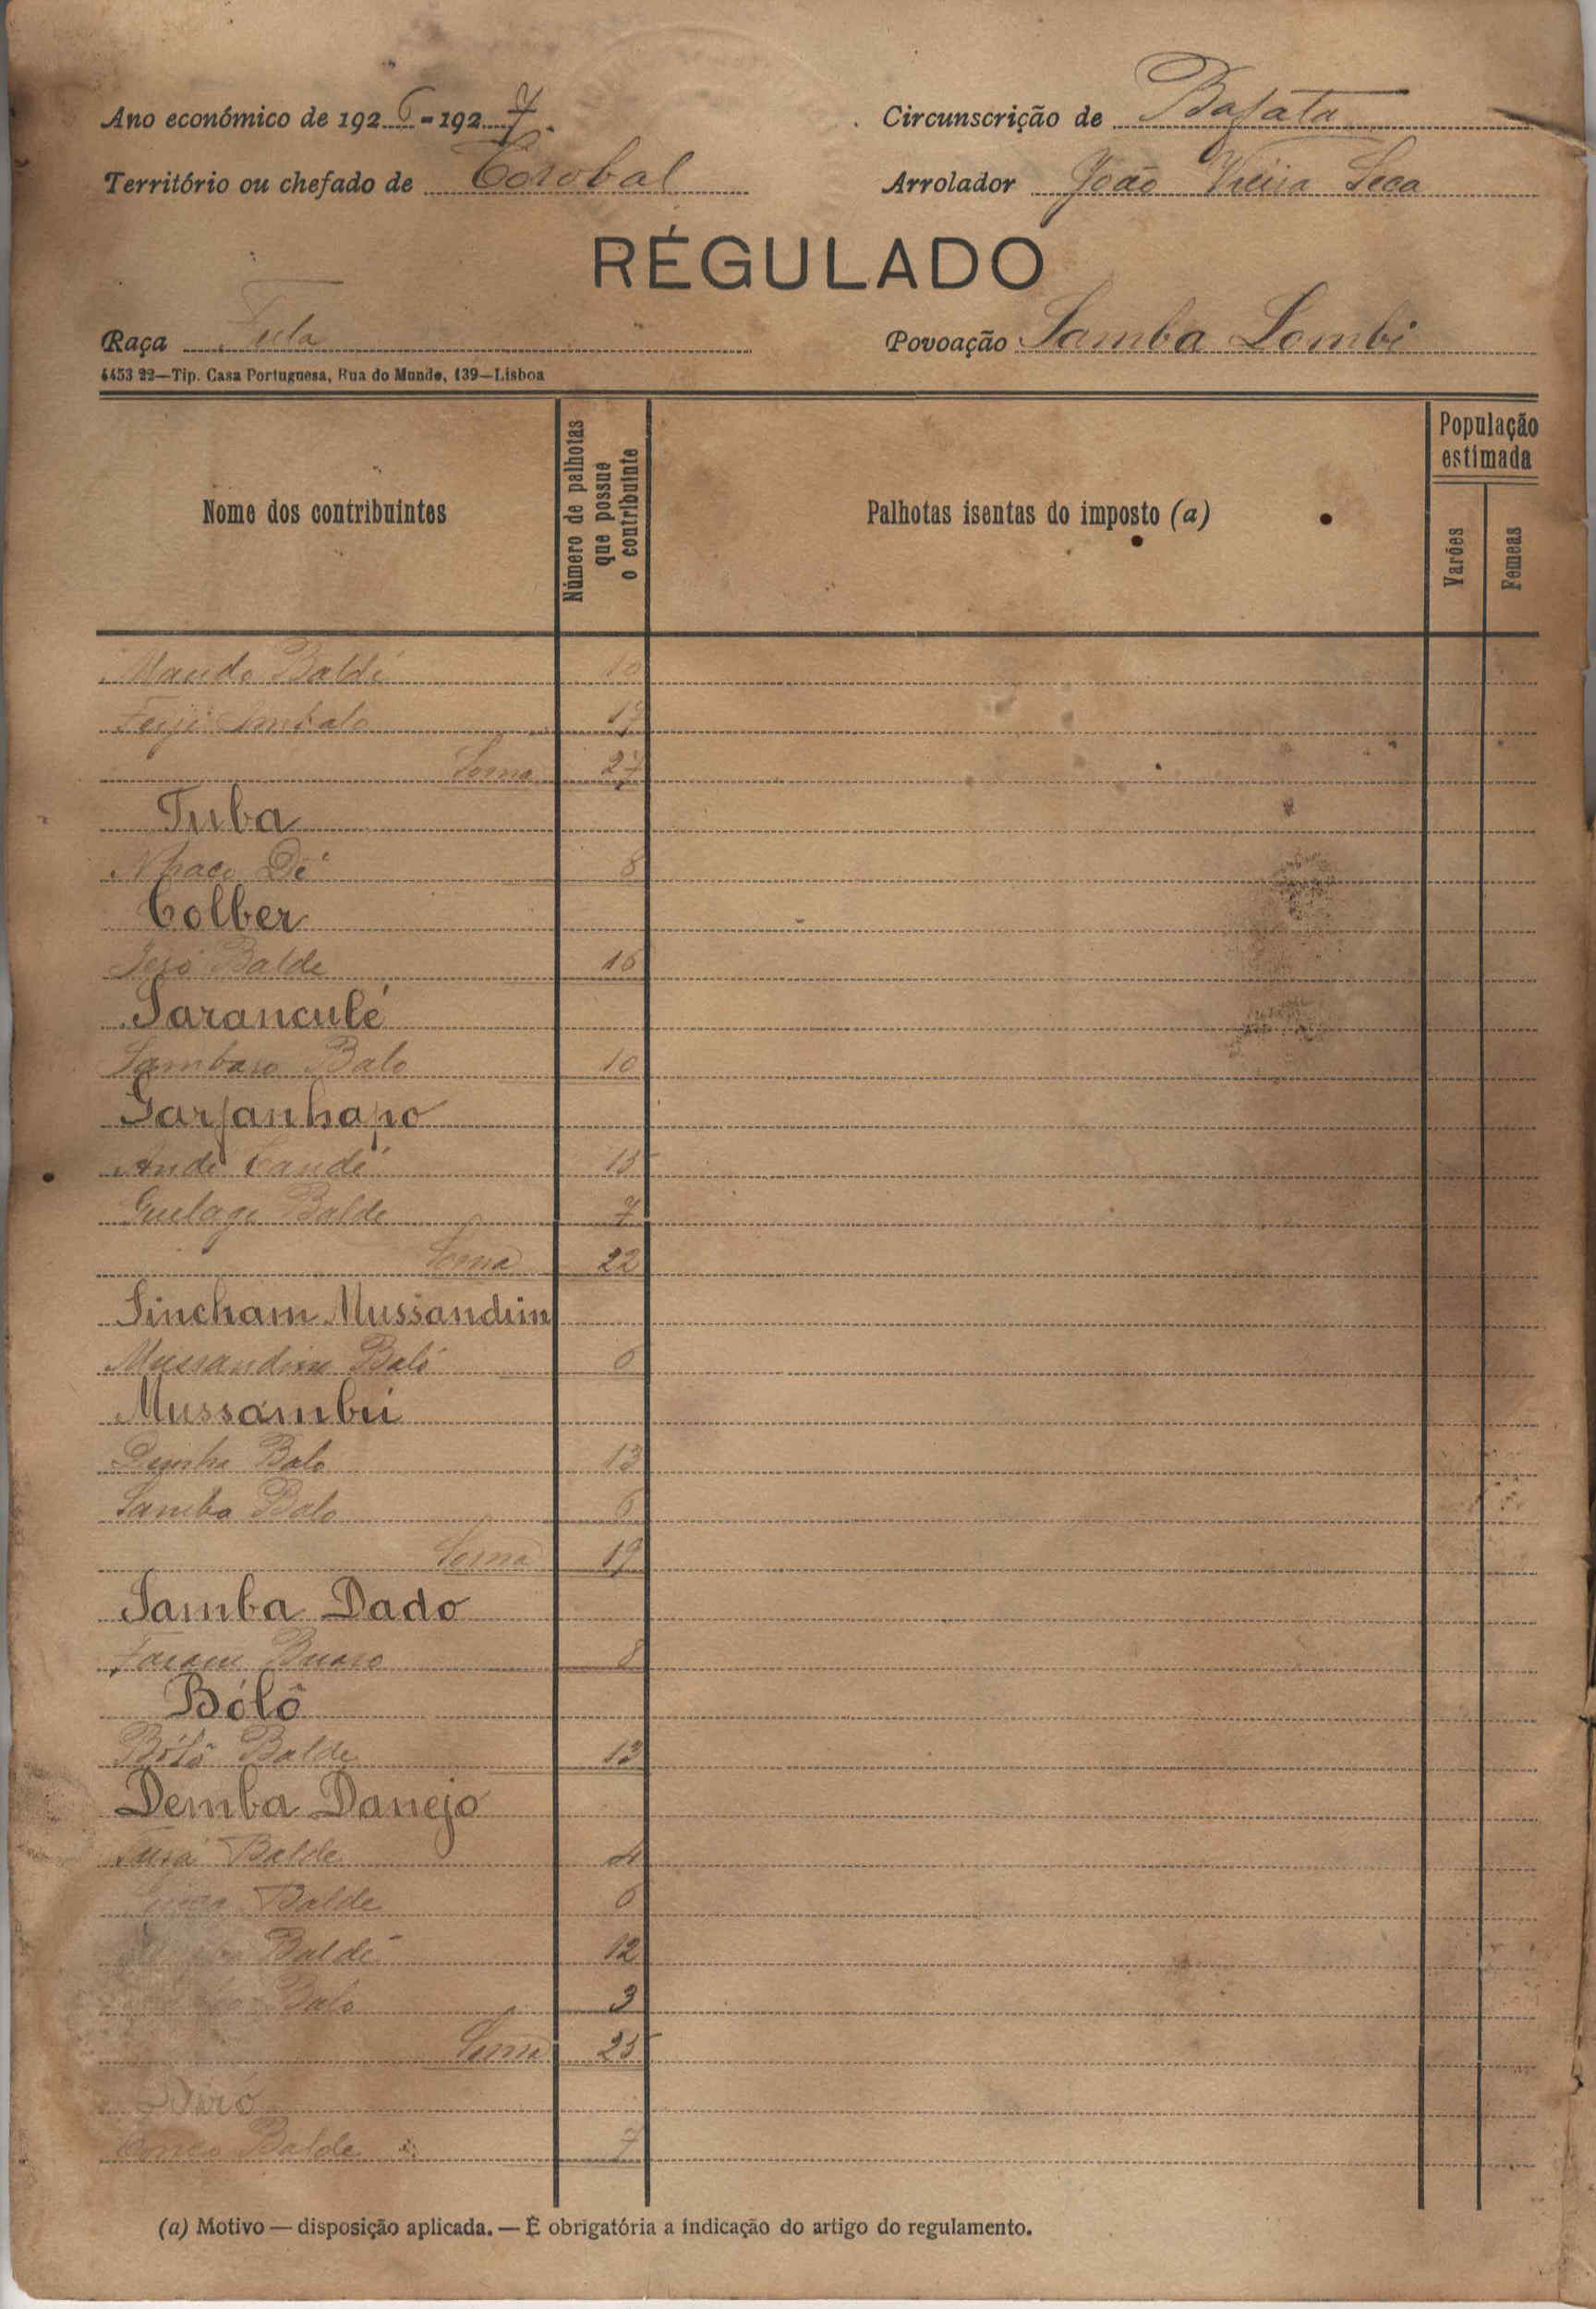 Ano económico de 1926-1927.
Circunscrição de Bafata
Território ou chefado de Corobal
Arrolador João Vieira Seca
RÉGULADO
Raça Fula
Povoação Samba Lombi
4453 22—Tip. Casa Portuguesa, Rua do Mundo, 139—Lisboa
Nome dos contribuintes
Número de palhotas que possue o contribuinte
Palhotas isentas do imposto (a)
População estimada
Varões
Femeas
Maudo Baldé 10
Embalo 17
Soma 27
Tuba
8
Colber
Balde 16
Saranculé
Sambaro Balo 10
Sarjanhapo
Candé 15
Guelage Balde 7
Soma 22
Sincham Mussandim
Mussandim Baló 6
Mussambui
Demba Balo 13
Samba Balo 6
Soma 19
Samba Dado
8
Bólô
Bólô Balde 13
Demba Danejo
Balde 4
Balde 6
Baldé 12
Balo 3
Soma 25
Balde 7
(a) Motivo — disposição aplicada. — É obrigatória a indicação do artigo do regulamento.